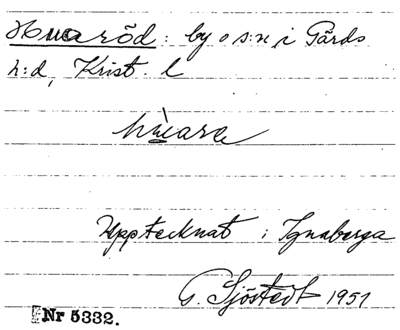 Huaröd: by o s:n, i Gärds
h:d, Krist. l
hùara
Upptecknat i Ignaberga
G. Sjöstedt 1951
Nr 5332.